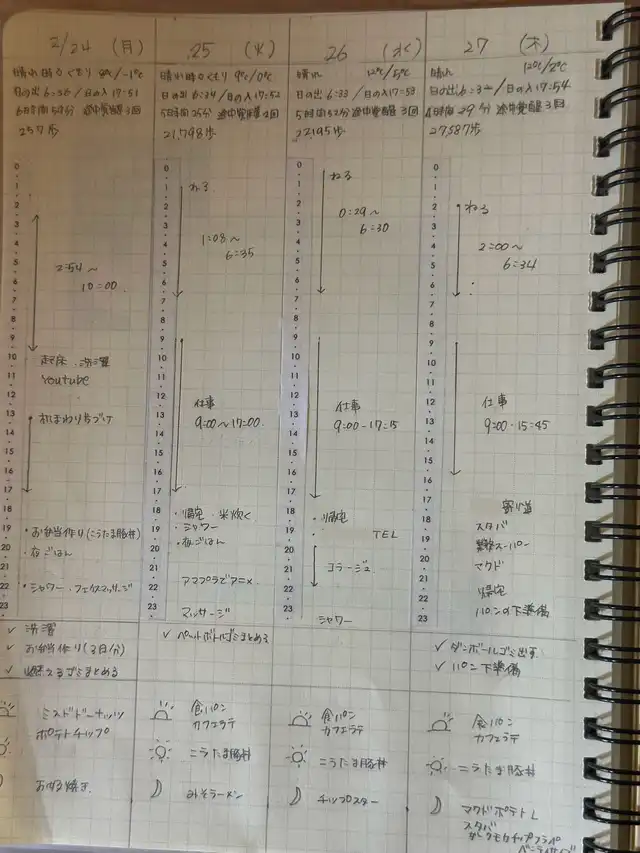 2/24 (月)
晴れ時々くもり 8℃/-1℃
日の出 6:36/日の入 17:51
6時間54分 途中覚醒3回
257歩
2:54~
10:00
起床・洗濯
Youtube
机まわり片づけ
・お弁当作り(こうたま豚丼)
・夜ごはん
・シャワー・フェイスマッサージ
✓ 洗濯
✓ お弁当作り(3日分)
✓ 燃えるゴミまとめる
ミスドドーナッツ
ポテトチップ
お好み焼き
25 (火)
晴れ時々くもり 9℃/0℃
日の出 6:34/日の入 17:52
5時間25分 途中覚醒2回
21,798歩
ねる
1:08~
6:35
仕事
9:00~17:00
・帰宅・米炊く
・シャワー
・夜ごはん
アマプラでアニメ
マッサージ
✓ ペットボトルゴミまとめる
食パン
カフェラテ
こうたま豚丼
みそラーメン
26 (水)
晴れ 12℃/5℃
日の出 6:33/日の入 17:53
5時間52分 途中覚醒3回
22,195歩
ねる
0:29~
6:30
仕事
9:00-17:15
・帰宅
TEL
コラージュ
シャワー
食パン
カフェラテ
こうたま豚丼
チップスター
27 (木)
晴れ 12℃/2℃
日の出 6:32/日の入 17:54
4時間29分 途中覚醒3回
27,587歩
ねる
2:00~
6:34
仕事
9:00-15:45
寄り道
スタバ
業務スーパー
マクド
帰宅
パンの下準備
✓ ダンボールゴミ出す
✓ パン下準備
食パン
カフェラテ
こうたま豚丼
マクドポテトL
スタバ
ダークモカチップフラペ
0
1
2
3
4
5
6
7
8
9
10
11
12
13
14
15
16
17
18
19
20
21
22
23
0
1
2
3
4
5
6
7
8
9
10
11
12
13
14
15
16
17
18
19
20
21
22
23
0
1
2
3
4
5
6
7
8
9
10
11
12
13
14
15
16
17
18
19
20
21
22
23
0
1
2
3
4
5
6
7
8
9
10
11
12
13
14
15
16
17
18
19
20
21
22
23